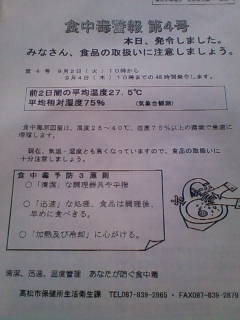 食中毒警報 第4号
本日、発令しました。
みなさん、食品の取扱いに注意しましょう。
第4号 9月2日(火)10時から
9月4日(木)10時までの48時間発令します。
前2日間の平均温度27.5℃
平均相対湿度75% (気象台観測)
食中毒原因菌は、温度25～40℃、湿度75%以上の環境で急速に
増殖します。
現在、気温・湿度とも高くなっていますので、食品の取扱いに
十分注意しましょう。
食中毒予防3原則
○「清潔」な調理器具や手指
○「迅速」な処理、食品は調理後、
早めに食べきる。
○「加熱及び冷却」に心がける。
清潔、迅速、温度管理 あなたが防ぐ食中毒
高松市保健所生活衛生課 TEL087-839-2865・FAX087-839-2879